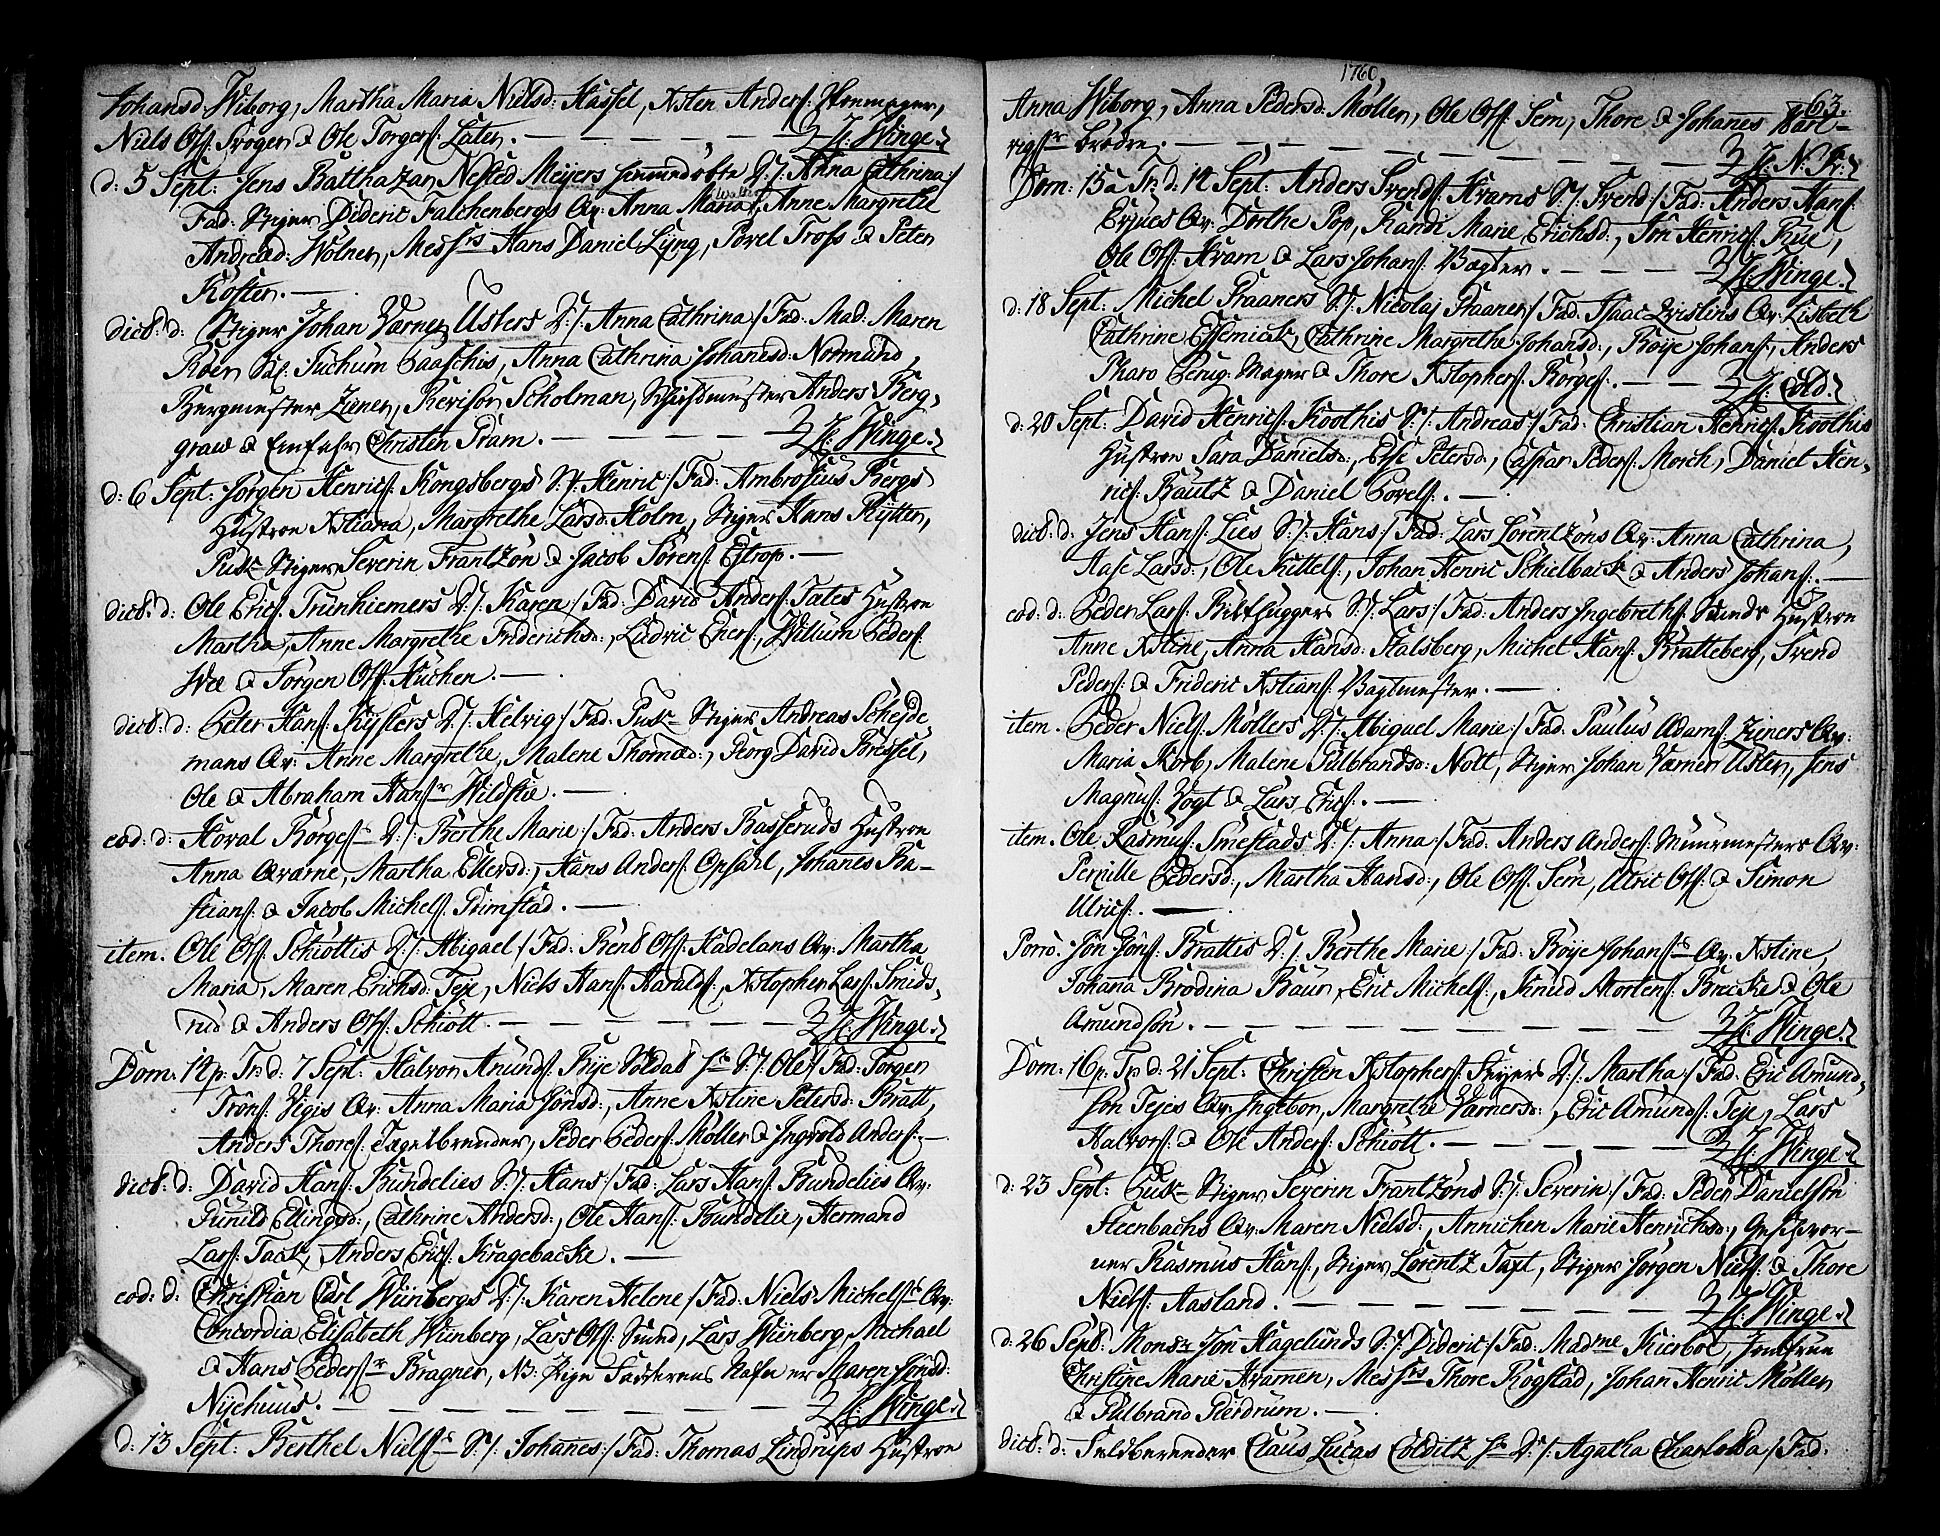 Johansd: Wiborg, Martha Maria Nielsd: Hassel, Xsten Anders:
Niels Olss: Progen & Ole Torgers: Laten. — H: Winge.
d: 5 Sept: Jens Balthazar Nested Meyers hiemmedøbte D:/: Anna Cathrina:/
Fad: Stiger Dideric Falchenbergs Qv: Anna Maria, Anne Margrethe
Andread: Wölner, Mesrs Hans Daniel Lyng, Povel Tross & Peter
Köster. —
dict: d: Stiger Johan Værner Usters D:/: Anna Cathrina:/ Fad: Mad: Maren
Röer Sal: Juchum Caaschis, Anna Cathrina Johanesd: Normand,
Bergmester Ziener, Revisor Scholman, Anders Berg-
graw & Christen Pram. — H: Winge.
d: 6 Sept: Jørgen Henrics: Kongsbergs S:/: Henric:/ Fad: Ambrosius Bergs
Hustroe Xstiana, Margrethe Larsd: Holm, Stiger Hans Rytter,
Puk- Stiger Severin Frantzøn & Jacob Sörens: Estrop. —
dict: d: Ole Erics: Trünhiemers D:/: Karen:/ Fad: David Anders: Tates Hustroe
Martha, Anne Margrethe Friderichsd:, Ludvic Eners:, Villum Peders:
Wee & Jörgen Olss: Kuchen. —
dict: d: Peter Hans: Kysslers D:/: Helvig:/ Fad: Puk- Stiger Andreas Scheide
mans Qv: Anne Margrethe, Malene Thomæd:, Georg David Pressel,
Ole & Abraham Hansr Wildstie. —
eod: d: Hoval Börges: D:/: Berthe Marie:/ Fad: Anders Basseruds Hustroe
Anna Qværne, Martha Ellersd:, Hans Anders: Opsahl, Johanes Ba-
stians: & Jacob Michels: Primstad. —
item. Ole Olss: Schiøttis D:/: Abigael:/ Fad: Bent Olss: Hadelans Qv: Martha
Maria, Maren Erichsd: Teje, Niels Hans: Haralds:, Xstopher Lars: Smids-
rud & Anders Olss: Schiøtt. — H: Winge.
Dom: 14 p: Tr: d: 7 Sept: Halvor Amunds: Rije Soldat S:/: Ole:/ Fad: Torger
Tröns: Vegis Qv: Anna Maria Jönsd:, Anne Xstine Petersd: Bratt,
Anders Thores: Tagelbrender, Peder Peders: Möller & Ingvold Anders: —
dict: d: David Hans: Bundelies S:/: Hans:/ Fad: Lars Hans: Bundelies Qv:
Gunild Ellingsd:, Cathrine Andersd:, Ole Hans: Bundelie, Hermand
Lars: Tack, Anders Erics: Kragebacke. —
eod: d: Christian Carl Wünbergs D:/: Karen Helene:/ Fad: Niels Michels: Qv:
Concordia Elisabeth Wünberg, Lars Olss: Sund, Lars Wünberg, Michael
& Hans Pedersr Bragner, NB: Pige Fadderens Nafn er Maren Jönsd:
Nijehuus. — H: Winge.
d: 13 Sept: Berthel Niels: S:/: Johanes:/ Fad: Thomas Lindrups Hustroe
1760
63.
Anna Wiborg, Anna Pedersd: Möller, Ole Olss: Sem, Thore & Johanes
Brödre. — H: N. F.
Dom: 15 a Tr: d: 14 Sept: Anders Svends: Krams S:/: Svend:/ Fad: Anders Hans:
Erjues Qv: Dorthe Pop, Randi Marie Erichsd:, Jön Henrics: Rue,
Ole Olss: Kram & Lars Johans: Vogter. — H: Winge.
d: 18 Sept: Michel Praaners S:/: Nicolaj Praaner:/ Fad: Isaac Zvislins Qv: Lisbeth
Cathrine Essemiack, Cathrine Margrethe Johansd:, Böije Johans:, Anders
Pharo Perug-Mager & Thore Xstophers: Börges:. — H: Cold.
d: 20 Sept: David Henrics: Koothis S:/: Andreas:/ Fad: Christian Henrics: Koothis
Hustroe Sara Danielsd:, Else Petersd:, Caspar Peders: Morch, Daniel Hen-
rics: Bautz & Daniel Povels:. —
dict: d: Jens Hans: Lies S:/: Hans:/ Fad: Lars Lorentzöns Qv: Anna Cathrina,
Aase Larsd:, Ole Kittels:, Johan Henric Schielback & Anders Johans:. —
eod: d: Peder Lars: Biltshuggers S:/: Lars:/ Fad: Anders Ingebreths: Hustroe
Anne Xstine, Anna Hansd: Halsberg, Michel Hans: Bratteberg, Svend
Peders: & Frideric Xstians: Vagtmester. —
item. Peder Niels: Möllers D:/: Abiguel Marie:/ Fad: Paulus Adams: Zieners Qv:
Maria Korb, Malene Gulbrandsd: Nolt, Stiger Johan Værner Uster, Jens
Magnus: Vogt & Lars Erics:. —
item. Ole Rasmus: Smestads D:/: Anna:/ Fad: Anders Anders: Muurmesters Qv:
Pernille Pedersd:, Martha Hansd:, Ole Olss: Sem, Ulric Olss: & Simon
Ulrics:. —
Porro. Jön Jöns: Brattis D:/: Berthe Marie:/ Fad: Böije Johans: Qv: Xstine,
Johana Brodina Baur, Eric Michels:, Knud Mortens: Bracke & Ole
Amundsön. — H: Winge.
Dom: 16 p: Tr: d: 21 Sept: Christen Xstophers: Freyers D:/: Martha:/ Fad: Eric Amund-
sön Tejes Qv: Ingebor, Margrethe Værnersd:, Eric Amunds: Teje, Lars
Halvors: & Ole Anders: Schiøtt. — H: Winge.
d: 23 Sept: Puk- Stiger Severin Frantzöns S:/: Severin:/ Fad: Peder Danielsön
Steenbachs Qv: Maren Nielsd:, Annichen Marie Henrichsd:, Geshvor-
ner Rasmus Hans:, Stiger Lorentz Taxt, Stiger Jørgen Niels: & Thore
Niels: Aasland. — H: Winge.
d: 26 Sept: Monsr Jön Hagelunds S:/: Dideric:/ Fad: Madme Kierboe, Jomfrue
Christine Marie Kramer, Mesrs Thore Rogstad, Johan Henric Möller
& Gulbrand Gierdrum. —
dict: d: Sølvbrender Claus Lucas Colditz D:/: Agatha Charlotta:/ Fad: